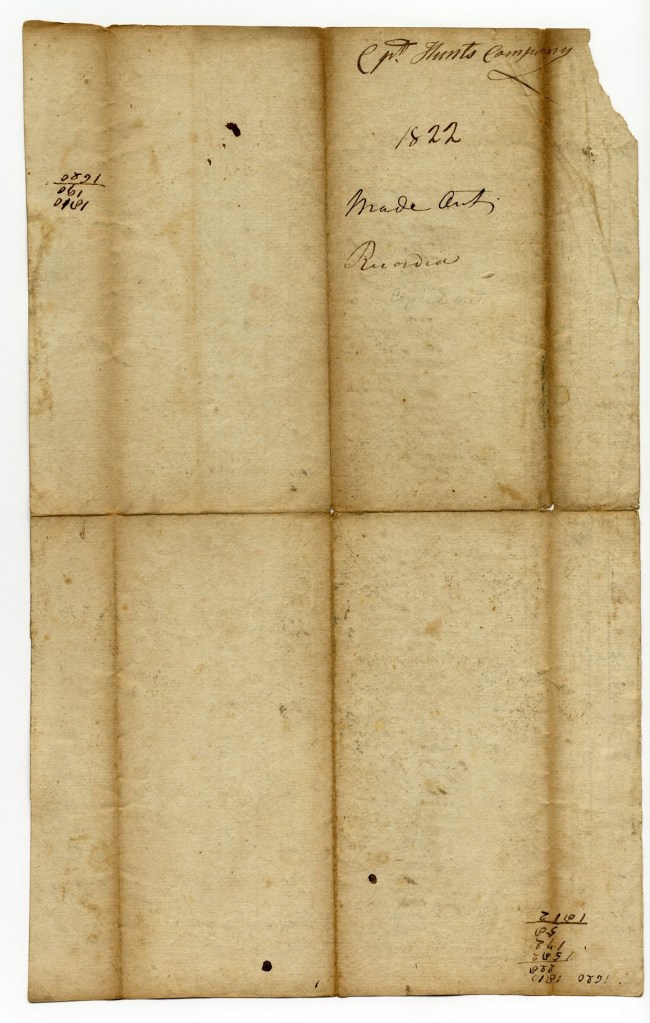 Cptn Hunts Company
1822
Made Out
Recorded
Copied out
1810
190
1620
1620 1810
228
1582
172
58
1812